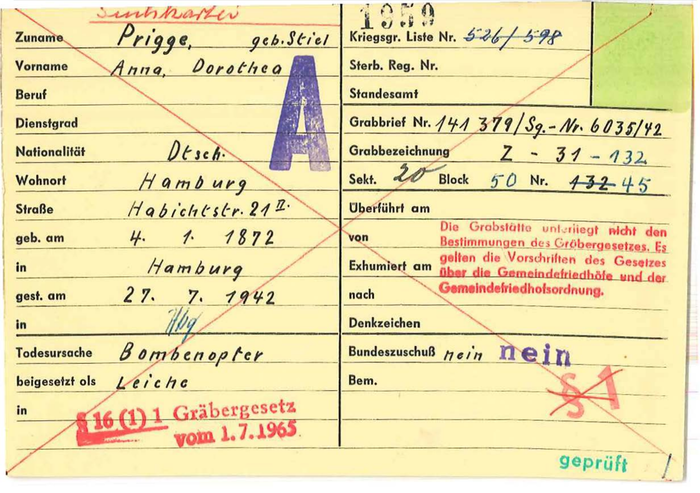 Suchkartei
1959
Zuname Prigge, geb. Stiel
Vorname Anna, Dorothea
Beruf
Dienstgrad
Nationalität Dtsch.
Wohnort Hamburg
Straße Habichtstr. 21 II.
geb. am 4. 1. 1872
in Hamburg
gest. am 27. 7. 1942
in Hbg
Todesursache Bombenopfer
beigesetzt als Leiche
in
§ 16 (1) 1 Gräbergesetz
vom 1.7.1965
A
Kriegsgr. Liste Nr. 526/598
Sterb. Reg. Nr.
Standesamt
Grabbrief Nr. 141 379/Sg.-Nr. 6035/42
Grabbezeichnung Z - 31 - 132
Sekt. 20 Block 50 Nr. 132 45
Überführt am
von
Exhumiert am
nach
Die Grabstätte unterliegt nicht den
Bestimmungen des Gräbergesetzes. Es
gelten die Vorschriften des Gesetzes
über die Gemeindefriedhöfe und der
Gemeindefriedhofsordnung.
Denkzeichen
Bundeszuschuß nein nein
Bem.
§ 1
geprüft